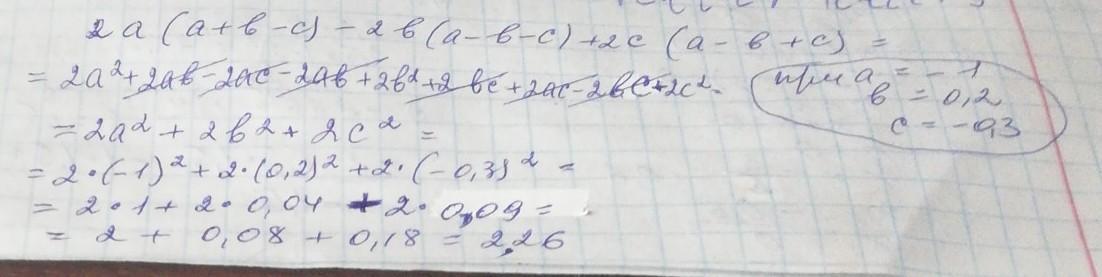 2a(a+b-c)-2b(a-b-c)+2c(a-b+c)=
=2a²+2ab-2ac-2ab+2b²+2bc+2ac-2bc+2c²=
при a=-1
b=0,2
c=-0,3
=2a²+2b²+2c²=
=2·(-1)²+2·(0,2)²+2·(-0,3)²=
=2·1+2·0,04+2·0,09=
=2+0,08+0,18=2,26